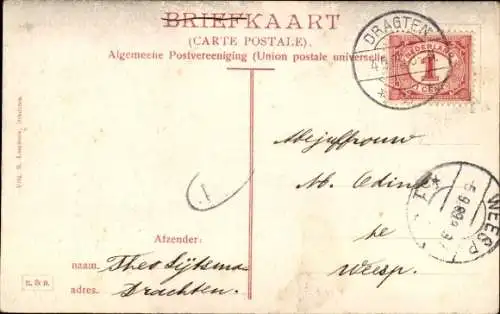 BRIEFKAART
(CARTE POSTALE).
Algemeene Postvereeniging (Union postale universelle
DRAGTEN
NEDERLAND
1
CENT
Mejuffrouw
M. Edink
te
Weesp.
WEESP
5.9.
1
Afzender:
naam. Theo Sijtsma
adres. Drachten.